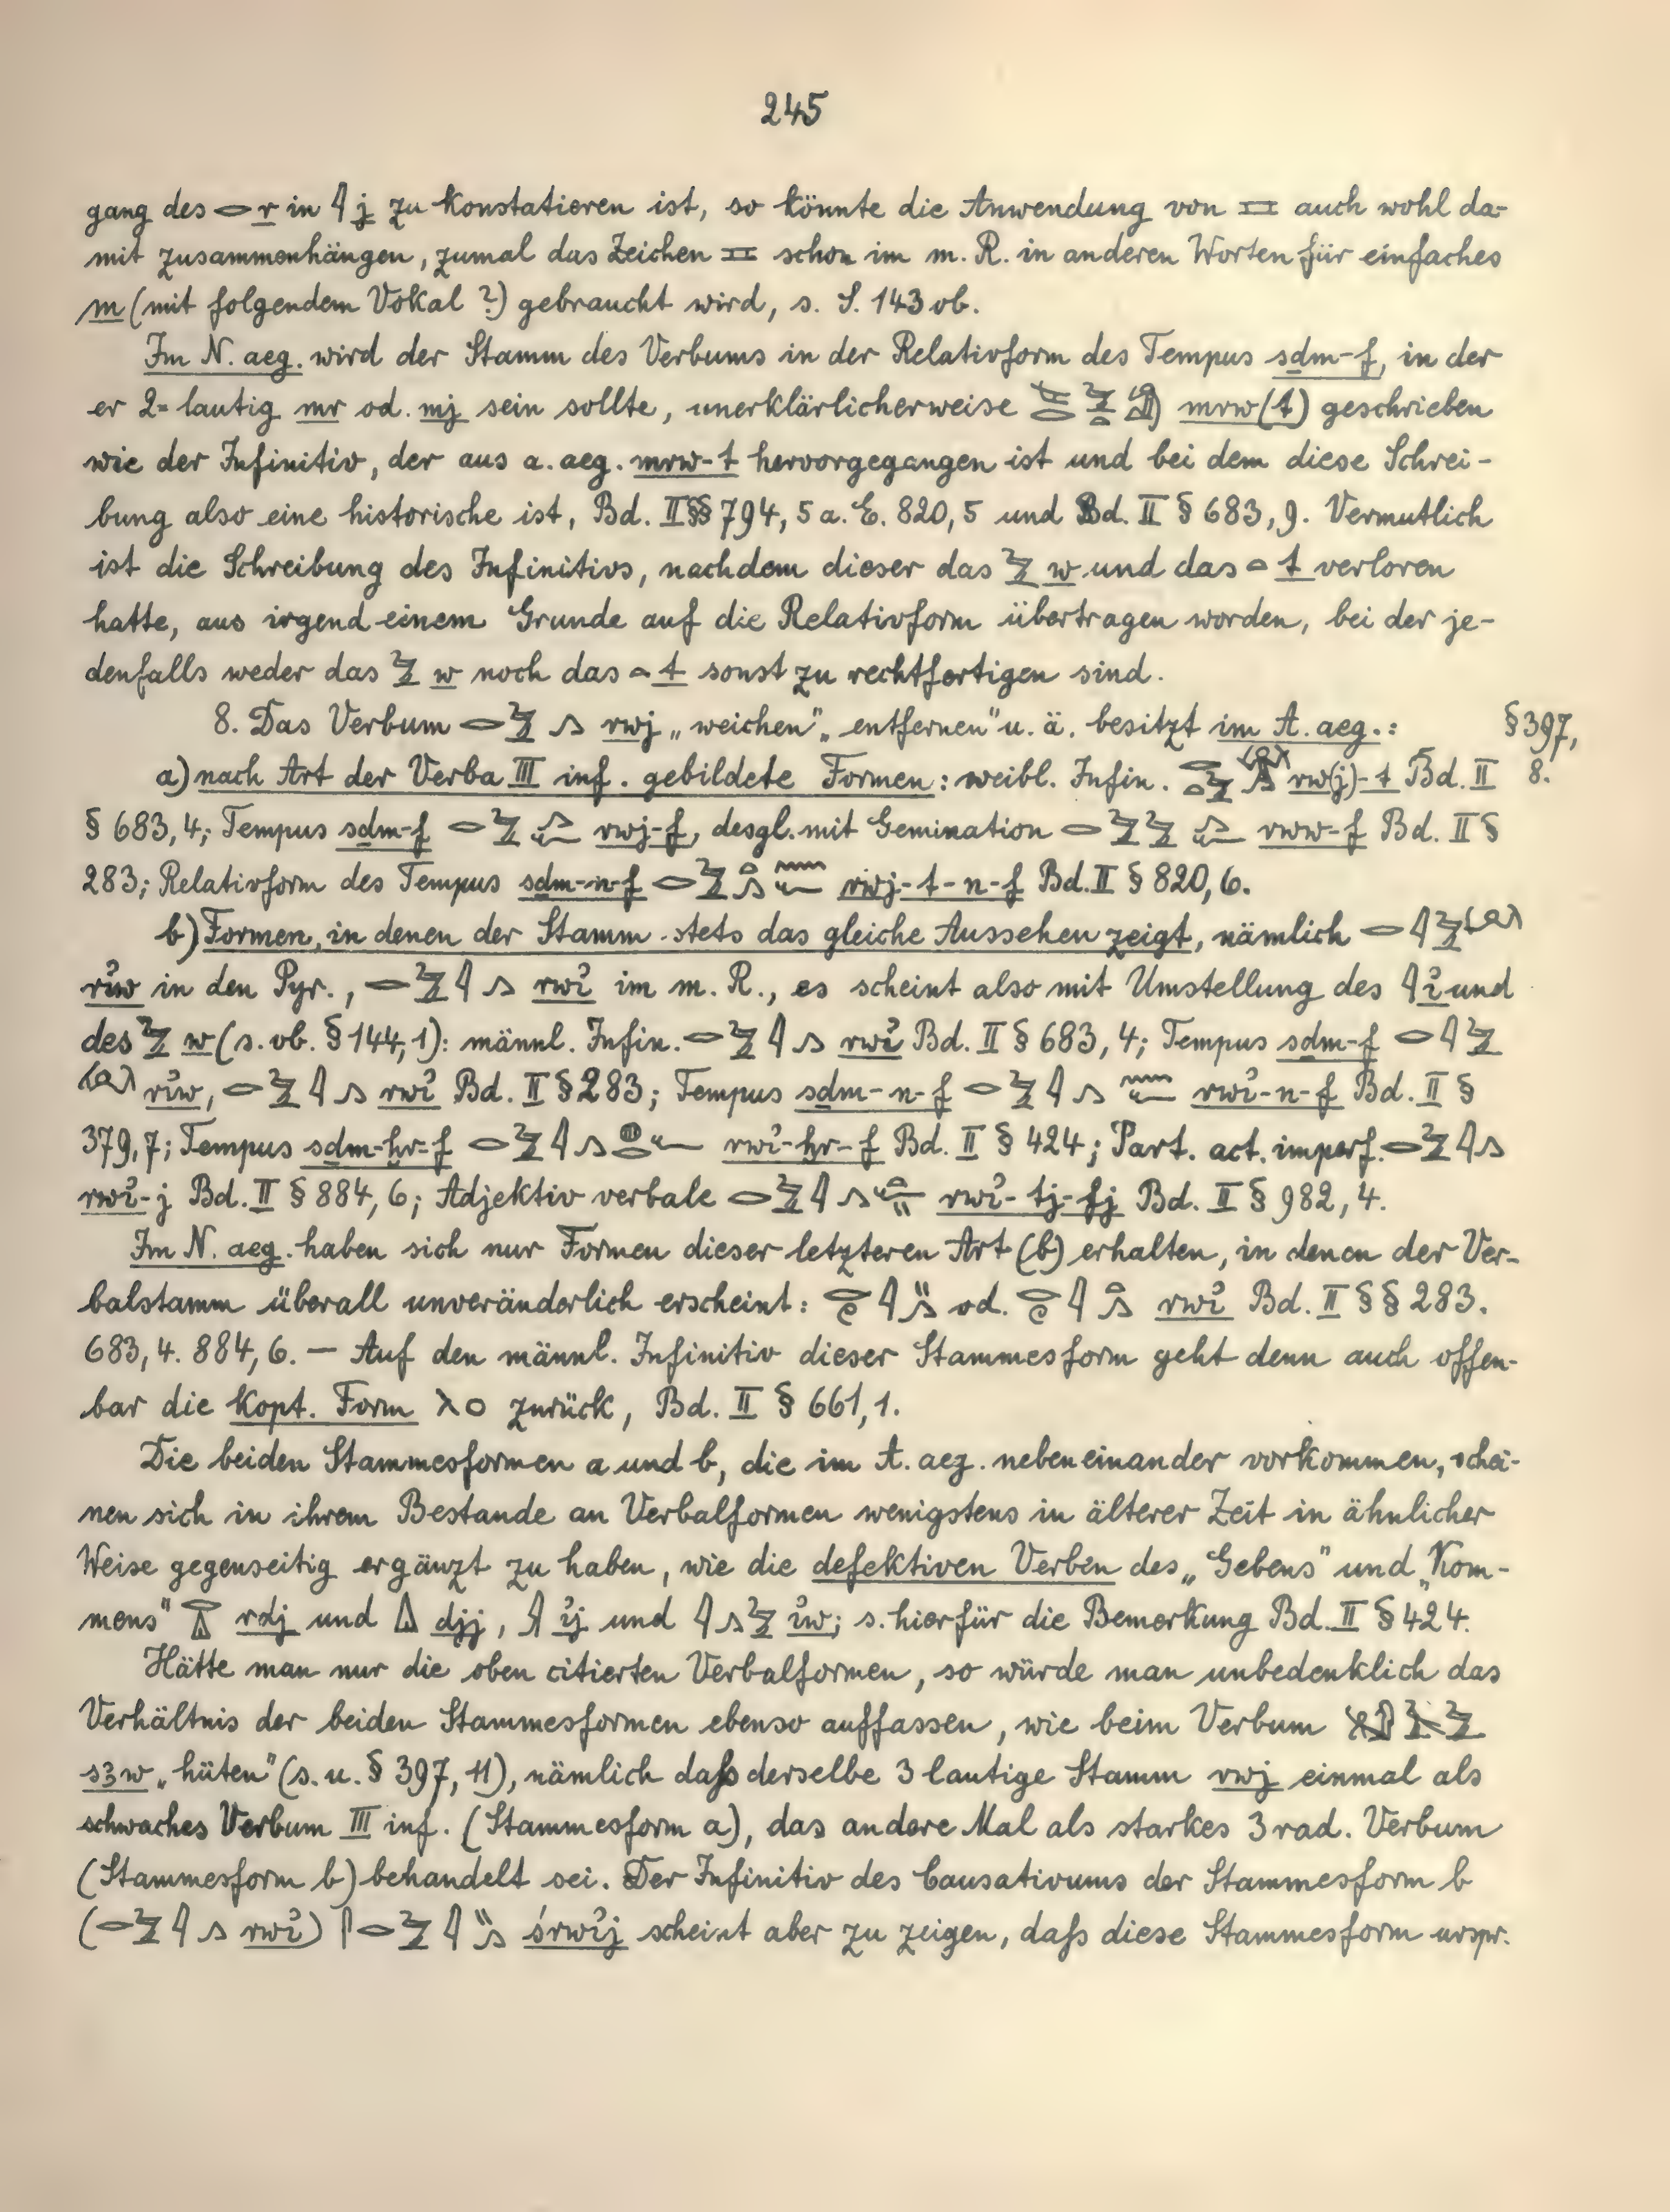 245
gang des 𓂋 r in 𓇋 j zu konstatieren ist, so könnte die Anwendung von 𓈘 auch wohl da-
mit zusammenhängen, zumal das Zeichen 𓈘 schon im m. R. in anderen Worten für einfaches
m (mit folgendem Vokal ?) gebraucht wird, s. S. 143 ob.
Im N. aeg. wird der Stamm des Verbums in der Relativform des Tempus sḏm-f, in der
er 2-lautig mr od. mj sein sollte, unerklärlicherweise mrw(t) geschrieben
wie der Infinitiv, der aus a. aeg. mrw-t hervorgegangen ist und bei dem diese Schrei-
bung also eine historische ist, Bd. II §§ 794, 5 a. E. 820, 5 und Bd. II § 683, 9. Vermutlich
ist die Schreibung des Infinitivs, nachdem dieser das 𓅱 w und das 𓏏 t verloren
hatte, aus irgend einem Grunde auf die Relativform übertragen worden, bei der je-
denfalls weder das 𓅱 w noch das 𓏏 t sonst zu rechtfertigen sind.
8. Das Verbum 𓂋𓅱𓂻 rwj „weichen", „entfernen" u. ä. besitzt im A. aeg.: § 397,
a) nach Art der Verba III inf. gebildete Formen: weibl. Infin. rw(j)-t Bd. II 8.
§ 683, 4; Tempus sḏm-f 𓂋𓅱𓂻𓆑 rwj-f, desgl. mit Gemination 𓂋𓅱𓅱𓂻𓆑 rww-f Bd. II §
283; Relativform des Tempus sḏm-n-f 𓂋𓅱𓏏𓂻𓈖𓆑 rwj-t-n-f Bd. II § 820, 6.
b) Formen, in denen der Stamm stets das gleiche Aussehen zeigt, nämlich 𓂋𓇋𓅱
rı͗w in den Pyr., 𓂋𓅱𓇋𓂻 rwı͗ im m. R., es scheint also mit Umstellung des 𓇋 ı͗ und
des 𓅱 w (s. ob. § 144, 1): männl. Infin. 𓂋𓅱𓇋𓂻 rwı͗ Bd. II § 683, 4; Tempus sḏm-f 𓂋𓇋𓅱
rı͗w, 𓂋𓅱𓇋𓂻 rwı͗ Bd. II § 283; Tempus sḏm-n-f 𓂋𓅱𓇋𓂻𓈖𓆑 rwı͗-n-f Bd. II §
379, 7; Tempus sḏm-ḫr-f 𓂋𓅱𓇋𓂻𓐍𓂋𓆑 rwı͗-ḫr-f Bd. II § 424; Part. act. imperf. 𓂋𓅱𓇋𓂻
rwı͗-j Bd. II § 884, 6; Adjektiv verbale 𓂋𓅱𓇋𓂻𓏏𓆑𓏭 rwı͗-tj-fj Bd. II § 982, 4.
Im N. aeg. haben sich nur Formen dieser letzteren Art (b) erhalten, in denen der Ver-
balstamm überall unveränderlich erscheint: 𓂋𓏲𓇋𓏭𓂻 od. 𓂋𓏲𓇋𓏏𓂻 rwı͗ Bd. II §§ 283.
683, 4. 884, 6. — Auf den männl. Infinitiv dieser Stammesform geht denn auch offen-
bar die kopt. Form ⲗⲟ zurück, Bd. II § 661, 1.
Die beiden Stammesformen a und b, die im A. aeg. nebeneinander vorkommen, schei-
nen sich in ihrem Bestande an Verbalformen wenigstens in älterer Zeit in ähnlicher
Weise gegenseitig ergänzt zu haben, wie die defektiven Verben des „Gebens" und „Kom-
mens" 𓂋𓂞 rdj und 𓏙 djj, 𓇍 ı͗j und 𓇋𓂻𓅱 ı͗w; s. hierfür die Bemerkung Bd. II § 424.
Hätte man nur die oben citierten Verbalformen, so würde man unbedenklich das
Verhältnis der beiden Stammesformen ebenso auffassen, wie beim Verbum
sꜣw „hüten" (s. u. § 397, 11), nämlich daß derselbe 3 lautige Stamm rwj einmal als
schwaches Verbum III inf. (Stammesform a), das andere Mal als starkes 3 rad. Verbum
(Stammesform b) behandelt sei. Der Infinitiv des Causativums der Stammesform b
(𓂋𓅱𓇋𓂻 rwı͗) 𓋴𓂋𓅱𓇋𓏭𓂻 śrwı͗j scheint aber zu zeigen, daß diese Stammesform urspr.